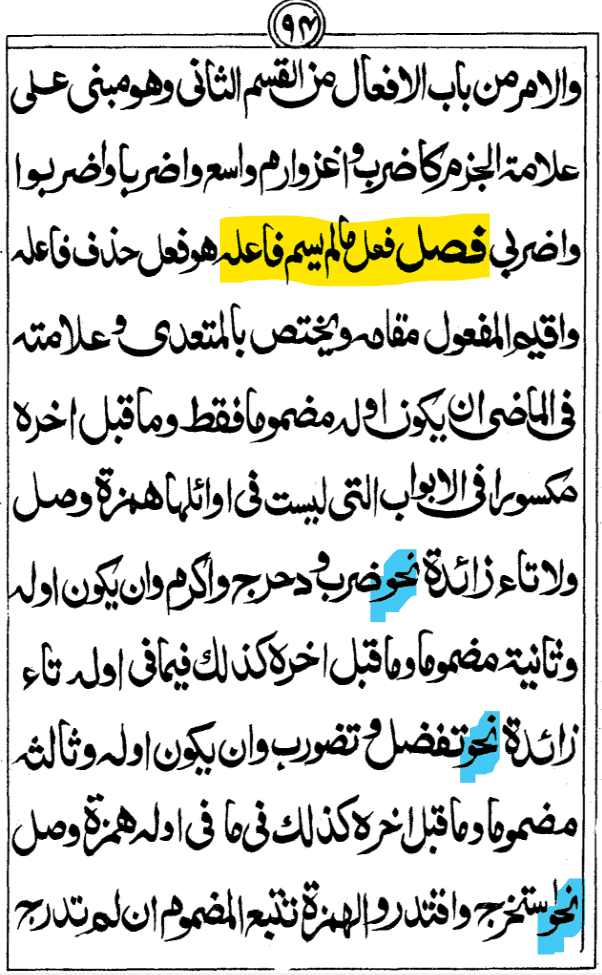 ٩٤
والامر من باب الافعال من القسم الثانى وهو مبنى على
علامة الجزم كاضرب و اغزوارم واسع واضربا واضربوا
واضربى فصل فعل مالم يسم فاعله هو فعل حذف فاعله
واقيم المفعول مقامه ويختص بالمتعدى و علامته
فى الماضى ان يكون اوله مضموما فقط وما قبل اخره
مكسورا فى الابواب التى ليست فى اوائلها همزة وصل
ولا تاء زائدة نحو ضرب و دحرج واكرم وان يكون اوله
وثانية مضموما وما قبل اخره كذلك فيما فى اوله تاء
زائدة نحو تفضل و تضورب وان يكون اوله وثالثه
مضموما وما قبل اخره كذلك فى ما فى اوله همزة وصل
نحو استخرج واقتدر و الهمزة تتبع المضموم ان لم تدرج